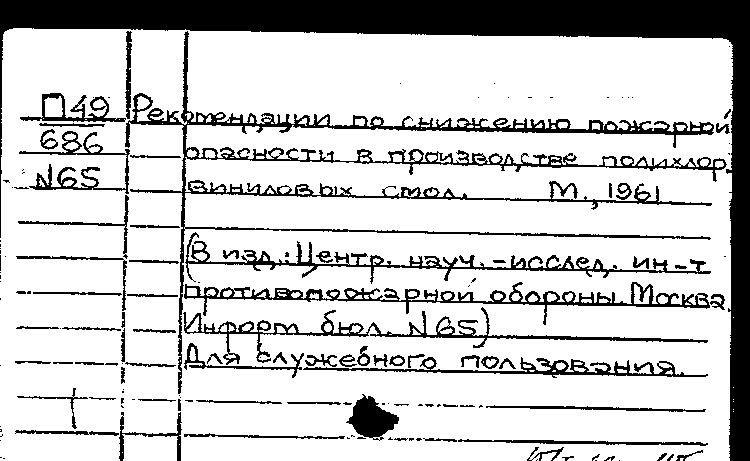 П49 Рекомендации по снижению пожарной
686 опасности в производстве полихлор
N65 виниловых смол. М., 1961
(В изд.: Центр. науч.-исслед. ин-т
противопожарной обороны. Москва.
Информ бюл. N65)
Для служебного пользования.